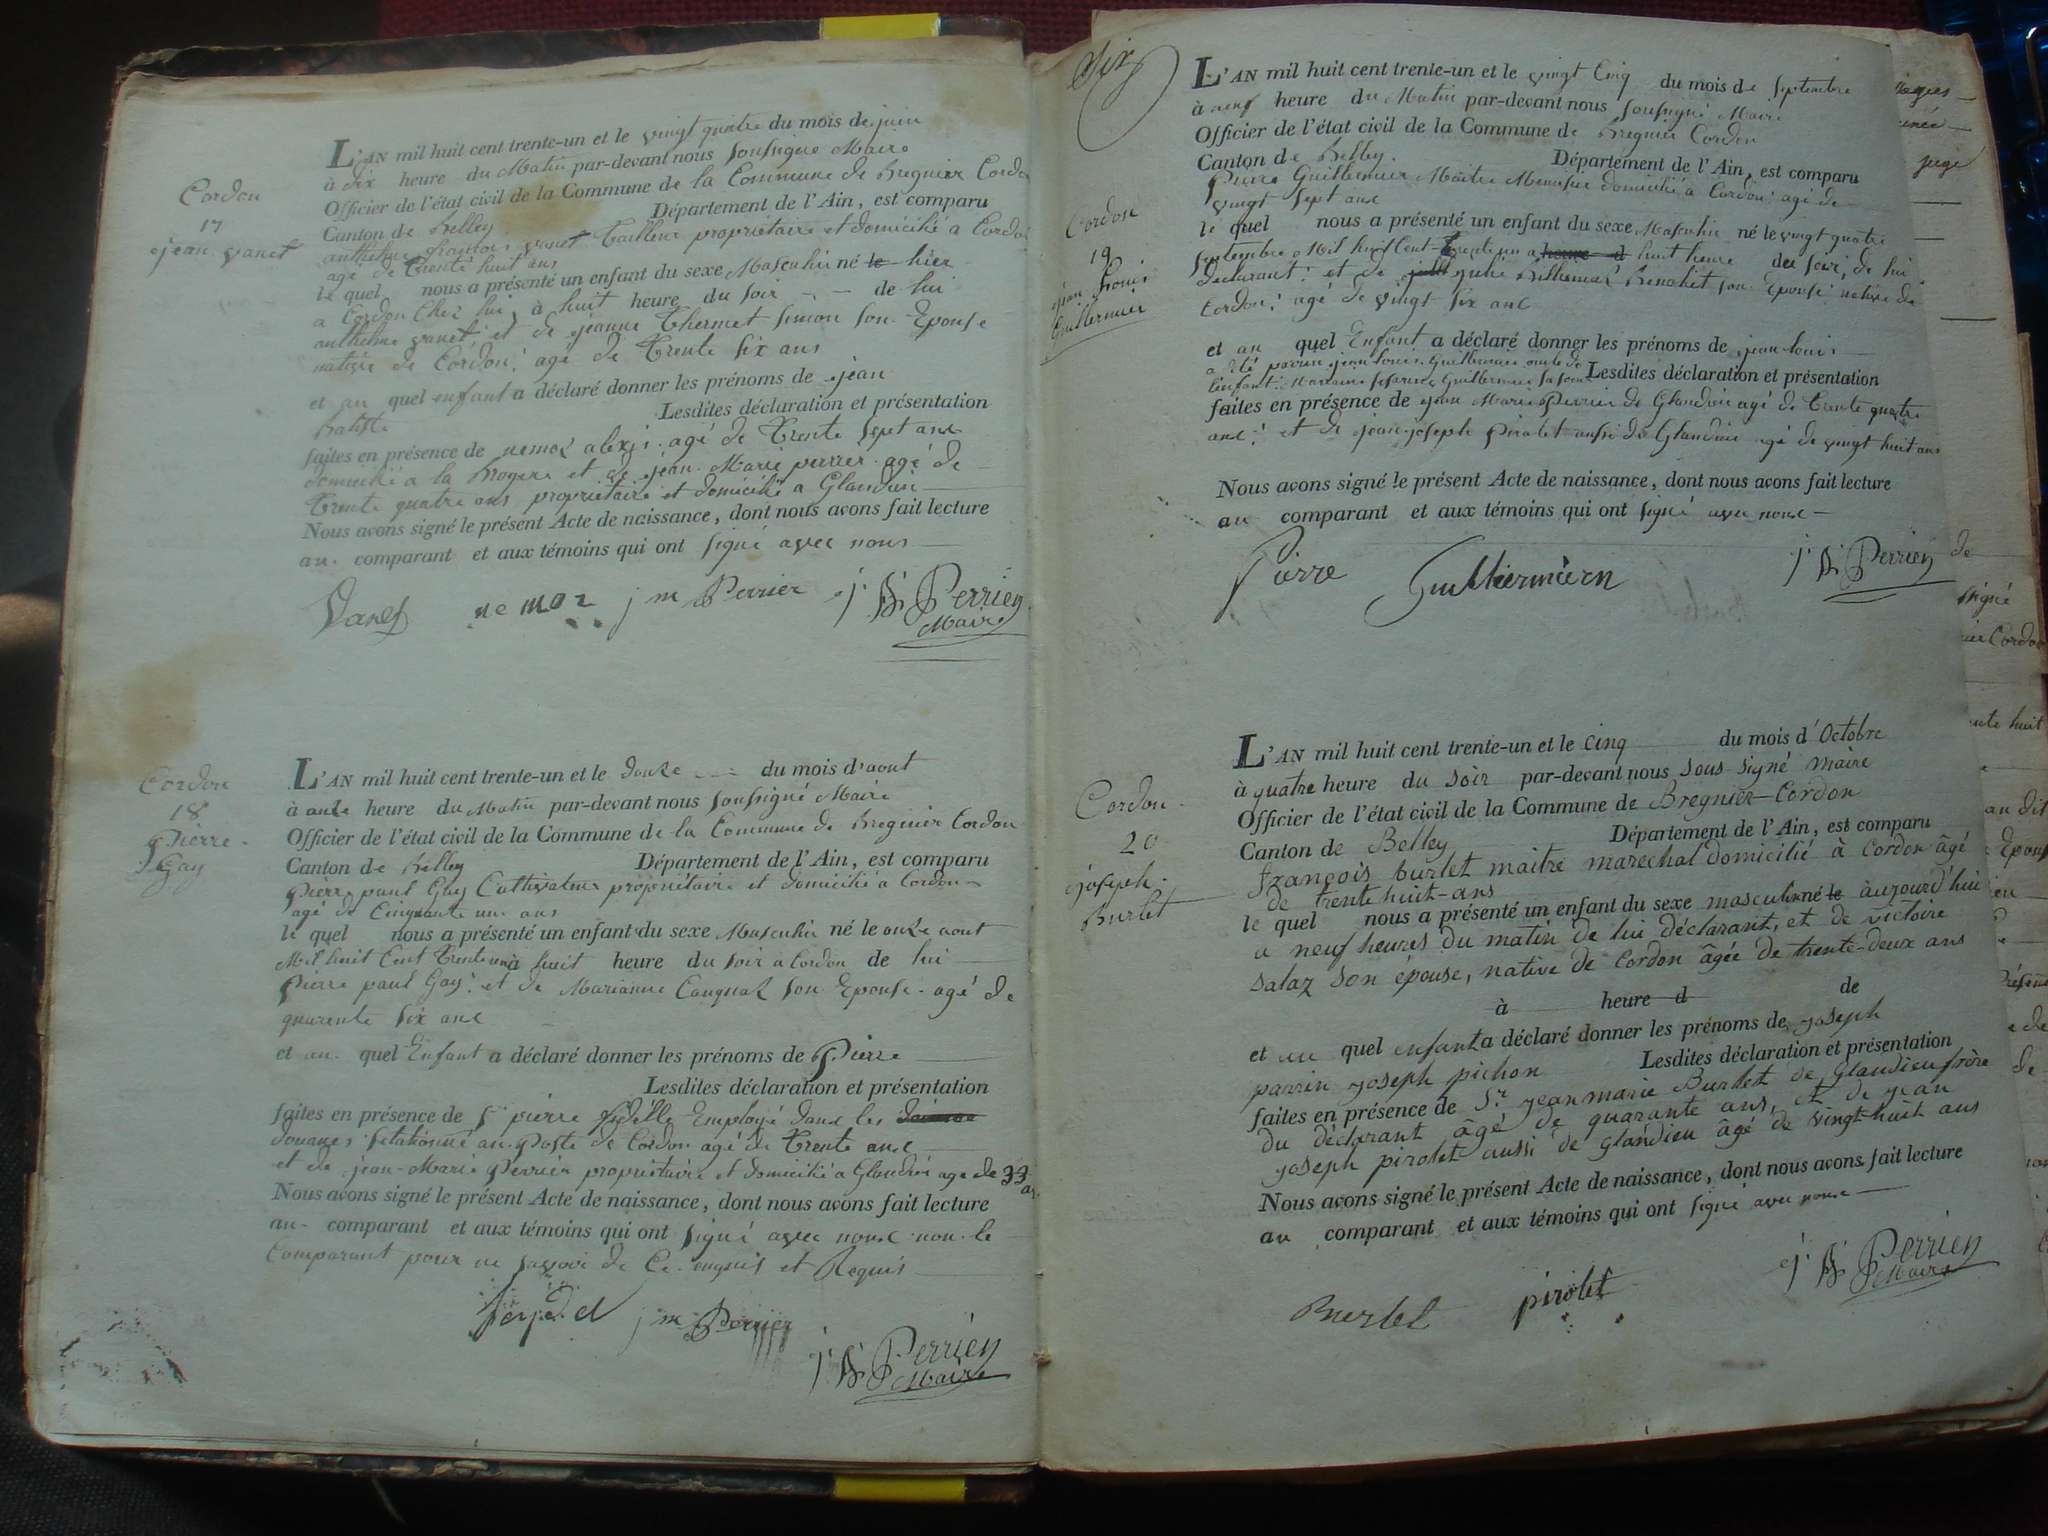 Cordon
17
jean vanet
L'AN mil huit cent trente-un et le vingt quatre du mois de juin
à dix heure du Matin par-devant nous soussigné Maire
Officier de l'état civil de la Commune de la Commune de Bregnier Cordon
Canton de Belley Département de l'Ain, est comparu
anthelme vanet tailleur propriétaire et domicilié a Cordon
agé de trente huit ans
le quel nous a présenté un enfant du sexe Masculin né le hier
a Cordon Chez lui, à huit heure du soir - - de lui
anthelme vanet, et de jeanne Thermet simon son Epouse
native de Cordon: agé de trente six ans
et au quel enfant a déclaré donner les prénoms de jean
Batiste Lesdites déclaration et présentation
faites en présence de nemoz alexis agé de trente sept ans
domicilié a la et de jean Marie perrier agé de
trente quatre ans propriétaire et domicilié a Glandieu
Nous avons signé le présent Acte de naissance, dont nous avons fait lecture
au comparant et aux témoins qui ont signé avec nous
Vanet nemoz j m Perrier j. B. Perrien
Maire
Cordon
18
Pierre
Gay
L'AN mil huit cent trente-un et le douze du mois d'aout
à onze heure du Matin par-devant nous soussigné Maire
Officier de l'état civil de la Commune de la Commune de Bregnier Cordon
Canton de Belley Département de l'Ain, est comparu
Pierre paul Gay Cultivateur propriétaire et domicilié a Cordon
agé de Cinquante un ans
le quel nous a présenté un enfant du sexe Masculin né le onze aout
Mil huit Cent Trente un à huit heure du soir a Cordon de lui
Pierre paul Gay: et de Marianne Caugnaz son Epouse agé de
quarente six ans
et au quel Enfant a déclaré donner les prénoms de Pierre
Lesdites déclaration et présentation
faites en présence de Sr pierre Employé dans les
douanes stationné au Poste de Cordon agé de trente ans
et de jean-Marie Perrier propriétaire et domicilié a Glandieu age de 33 an
Nous avons signé le présent Acte de naissance, dont nous avons fait lecture
au comparant et aux témoins qui ont signé avec nous non le
Comparant pour ne savoir de Ce enquis et Requis
j m Perrier
j. B. Perrien
Maire
Six
Cordon
19
jean Louis
Guillermier
L'AN mil huit cent trente-un et le vingt Cinq du mois de Septembre
à neuf heure du Matin par-devant nous soussigné Maire
Officier de l'état civil de la Commune de Bregnier Cordon
Canton de Belley. Département de l'Ain, est comparu
Pierre Guillermier Maitre Menuisier domicilié a Cordon: agé de
vingt sept ans
le quel nous a présenté un enfant du sexe Masculin né le vingt quatre
septembre Mil huit Cent Trente un a heure d huit heure du soir, de lui
déclarant: et de Benohit son Epouse native de
Cordon: agé de vingt six ans
et au quel Enfant a déclaré donner les prénoms de jean louis
a été parrin jean louis Guillermier oncle de
l'enfant: Marraine Guillermier Lesdites déclaration et présentation
faites en présence de jean Marie Perrier de Glandieu agé de trente quatre
ans: et de jean joseph Pirolet aussi de Glandieu agé de vingt huit ans
Nous avons signé le présent Acte de naissance, dont nous avons fait lecture
au comparant et aux témoins qui ont signé avec nous
Pierre Guilliermiern j. B. Perrien
Cordon
20
joseph
Burlet
L'AN mil huit cent trente-un et le cinq du mois d'Octobre
à quatre heure du soir par-devant nous sous signé maire
Officier de l'état civil de la Commune de Bregnier-Cordon
Canton de Belley Département de l'Ain, est comparu
françois burlet maitre marechal domicilié à Cordon âgé
de trente huit-ans
le quel nous a présenté un enfant du sexe masculin né le aujourd'hui
a neuf heures du matin de lui déclarant, et de victoire
salaz son épouse, native de Cordon âgée de trente-deux ans
à heure d de
et au quel enfant a déclaré donner les prénoms de joseph
parrin joseph pichon Lesdites déclaration et présentation
faites en présence de Sr jean marie Burlet de Glandieu frère
du déclarant âgé de quarante ans, et de jean
joseph pirolet aussi de Glandieu âgé de vingt-huit ans
Nous avons signé le présent Acte de naissance, dont nous avons fait lecture
au comparant et aux témoins qui ont signé avec nous
Buerlet pirolet j. B. Perrien
Maire